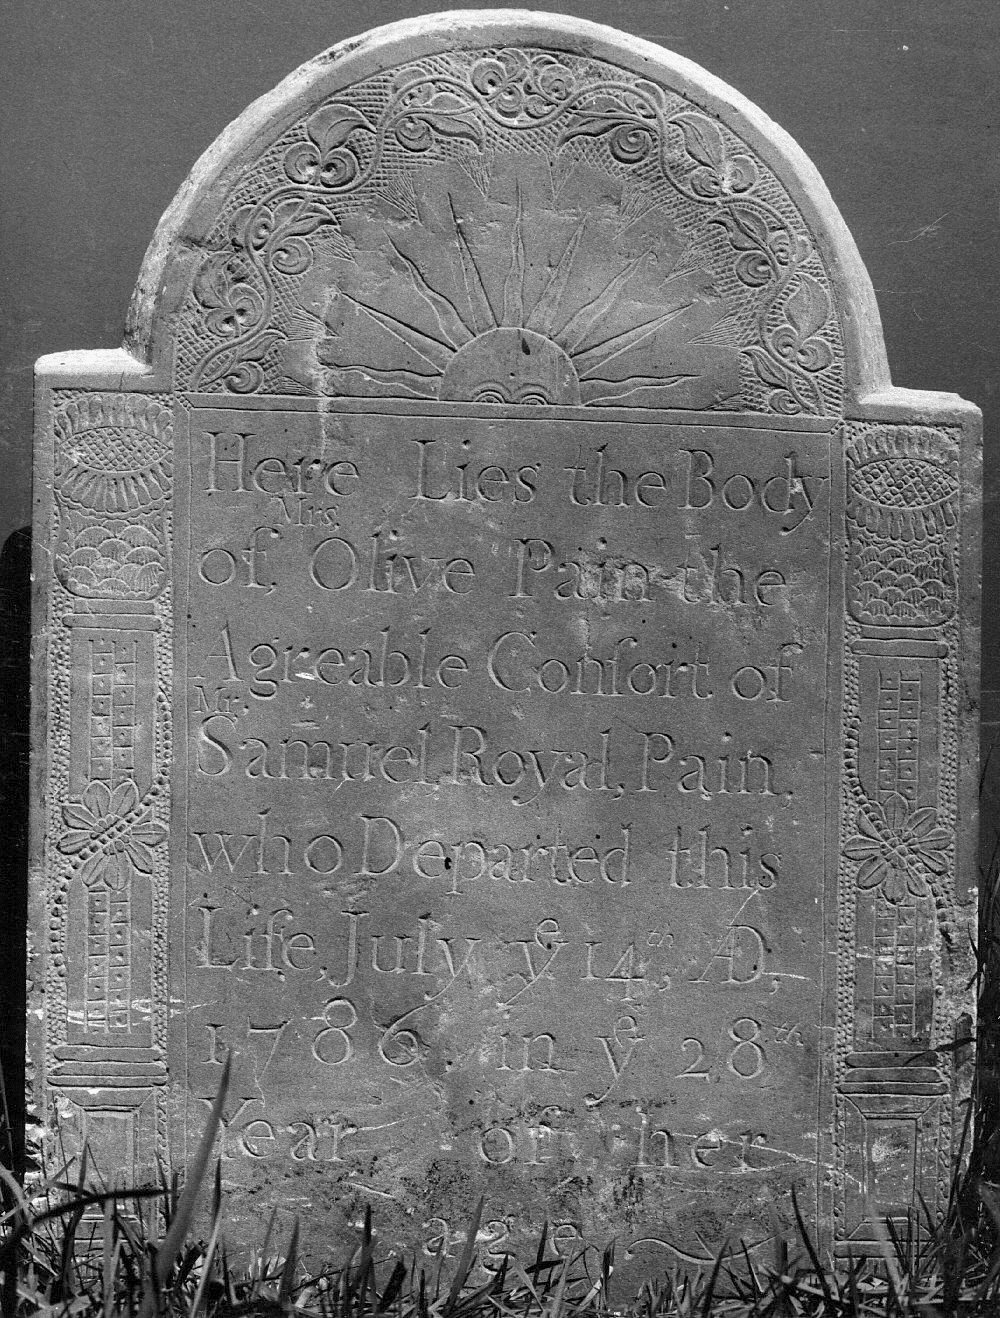 Here Lies the Body
Mrs.
of, Olive Pain, the
Agreable Conſort, of
Mr.
Samuel Royal, Pain,
who Departed, this
Life, July yͤ 14,ᵗʰ Æ,
1786 in yͤ 28ᵗʰ
Year of her
age